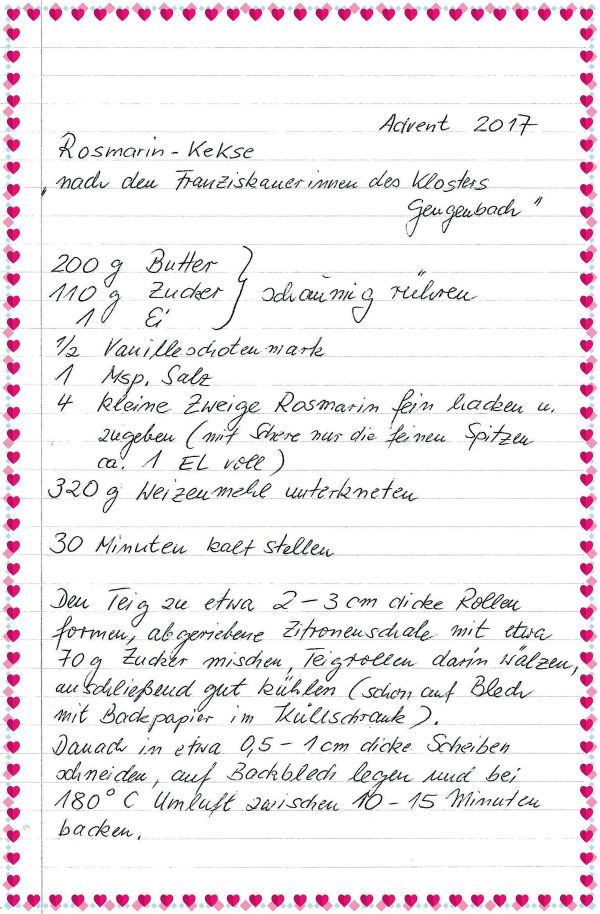 Advent 2017
Rosmarin-Kekse
„nach den Franziskanerinnen des Klosters
Gengenbach"
200 g Butter
110 g Zucker } schaumig rühren
1 Ei
1/2 Vanilleschotenmark
1 Msp. Salz
4 kleine Zweige Rosmarin fein hacken u.
zugeben (mit Schere nur die feinen Spitzen
ca. 1 EL voll)
320 g Weizenmehl unterkneten
30 Minuten kalt stellen
Den Teig zu etwa 2-3 cm dicke Rollen
formen, abgeriebene Zitronenschale mit etwa
70 g Zucker mischen, Teigrollen darin wälzen,
anschließend gut kühlen (schon auf Blech
mit Backpapier im Kühlschrank).
Danach in etwa 0,5-1 cm dicke Scheiben
schneiden, auf Backblech legen und bei
180° C Umluft zwischen 10-15 Minuten
backen.